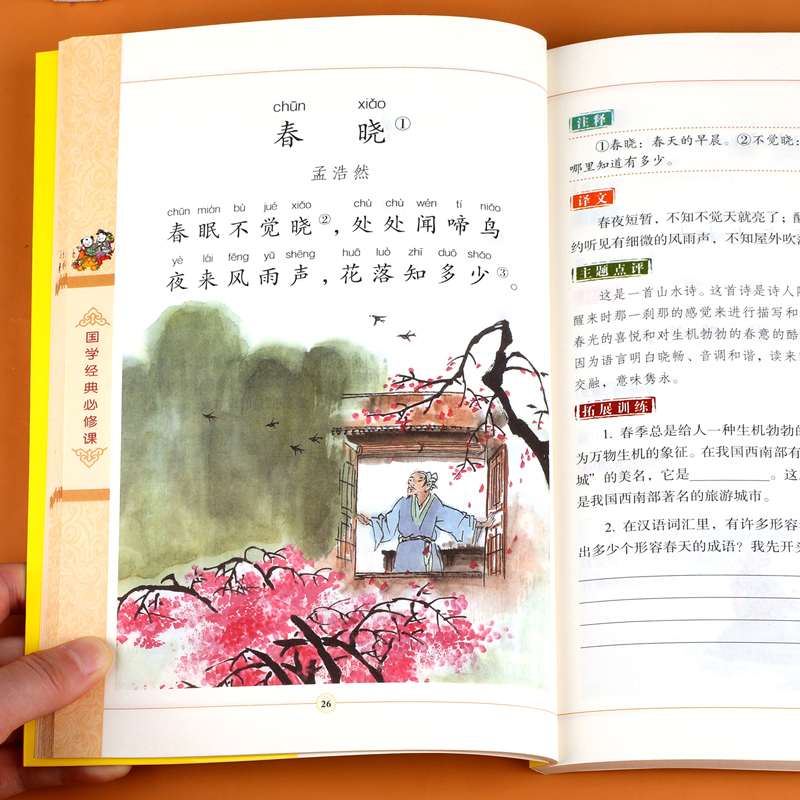 chūn xiǎo
春 晓①
孟浩然
chūn mián bù jué xiǎo chù chù wén tí niǎo
春眠不觉晓②，处处闻啼鸟
yè lái fēng yǔ shēng huā luò zhī duō shǎo
夜来风雨声，花落知多少③。
国学经典必修课
26
注释
①春晓：春天的早晨。②不觉晓：
哪里知道有多少。
译文
春夜短暂，不知不觉天就亮了；
约听见有细微的风雨声，不知屋外吹
主题点评
这是一首山水诗。这首诗是诗人
醒来时那一刹那的感觉来进行描写和
春光的喜悦和对生机勃勃的春意的酷
因为语言明白晓畅、音调和谐，读来
交融，意味隽永。
拓展训练
1. 春季总是给人一种生机勃勃的
为万物生机的象征。在我国西南部有
城”的美名，它是__________。这
是我国西南部著名的旅游城市。
2. 在汉语词汇里，有许多形容
出多少个形容春天的成语？我先开头